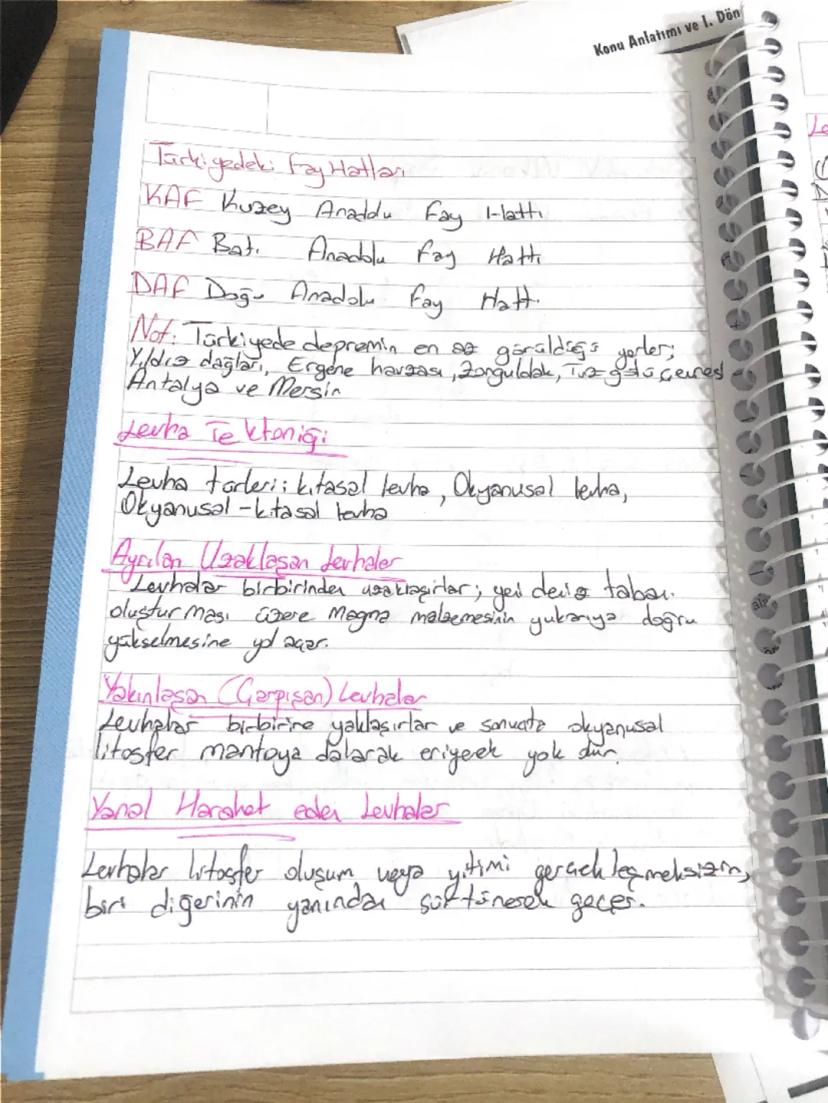 Konu Anlatımı ve I. Dön
Türkiyedeki Fay Hatları
KAF Kuzey Anadolu Fay Hattı
BAF Batı Anadolu Fay Hattı
DAF Doğu Anadolu Fay Hattı
Not: Türkiyede depremin en az görüldüğü yerler;
Yıldız dağları, Ergene havzası, Zonguldak, Tuz gölü çevresi
Antalya ve Mersin
Levha Tektoniği
Levha türleri; kıtasal levha, Okyanusal levha,
Okyanusal-kıtasal levha
Ayrılan Uzaklaşan Levhalar
Levhalar birbirinden uzaklaşırlar; yeni deniz tabanı
oluşturması üzere magma malzemesinin yukarıya doğru
yükselmesine yol açar.
Yakınlaşan (Çarpışan) Levhalar
Levhalar birbirine yaklaşırlar ve sonuçta okyanusal
litosfer mantoya dalarak eriyerek yok olur.
Yanal Harahet eden Levhalar
Levhalar litosfer oluşum veya yitimi gerçekleşmeksizin,
biri diğerinin yanından sürtünerek geçer.